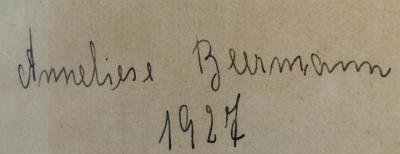 Anneliese Beermann
1927